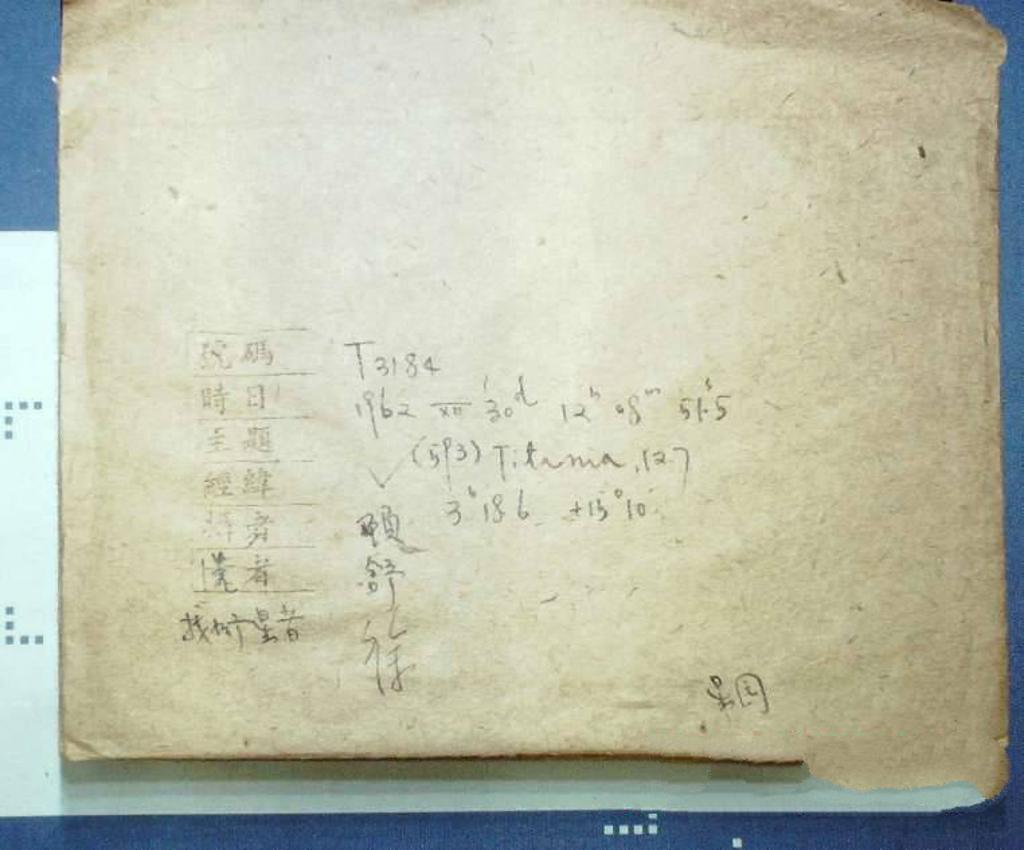 號碼 T3184
時日 1962 XII 30d 12h 08m 51s.5
主題 (593) Titania, 12.7
經緯 3h 18.6 +15°10
顧
舒
找新星者 徐